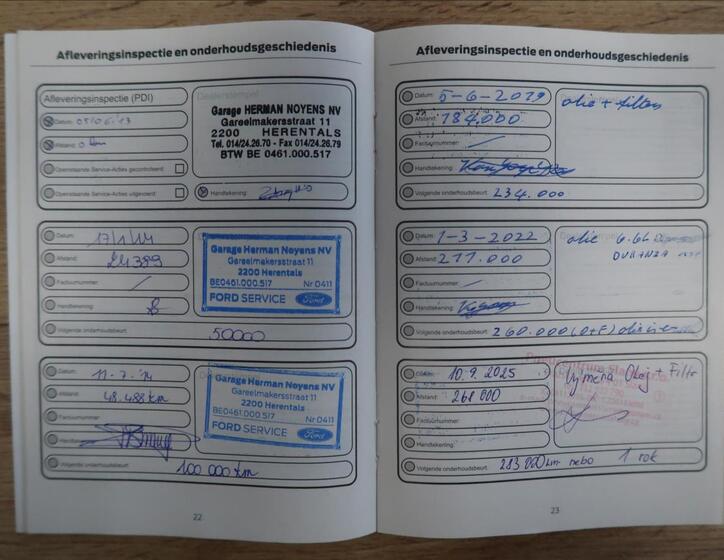 Afleveringsinspectie en onderhoudsgeschiedenis
Afleveringsinspectie (PDI)
Dealerstempel
Datum:
Afstand: 0 km
Openstaande Service-Acties gecontroleerd:
Openstaande Service-Acties uitgevoerd:
Garage HERMAN NOYENS NV
Gareelmakersstraat 11
2200 HERENTALS
Tel. 014/24.26.70 - Fax 014/24.26.79
BTW BE 0461.000.517
Handtekening:
Datum: 17/1/14
Afstand: 24389
Factuurnummer:
Handtekening:
Volgende onderhoudsbeurt: 50000
Garage Herman Noyens NV
Gareelmakersstraat 11
2200 Herentals
BE0461.000.517 Nr 0411
FORD SERVICE Ford
Datum: 11-7-'14
Afstand: 48.488 km
Factuurnummer:
Handtekening:
Volgende onderhoudsbeurt: 100 000 km
Garage Herman Noyens NV
Gareelmakersstraat 11
2200 Herentals
BE0461.000.517 Nr 0411
FORD SERVICE Ford
22
Afleveringsinspectie en onderhoudsgeschiedenis
Datum: 5-6-2019
Afstand: 184.000
Factuurnummer:
Handtekening:
Volgende onderhoudsbeurt: 234.000
olie + filters
Datum: 1-3-2022
Afstand: 217.000
Factuurnummer:
Handtekening:
Volgende onderhoudsbeurt: 260.000 (O+F)
olie 6.6L
Datum: 10.9.2025
Afstand: 268 000
Factuurnummer:
Handtekening:
Volgende onderhoudsbeurt: 283 000 km nebo 1 rok
Výměna Olej + Filtr
23